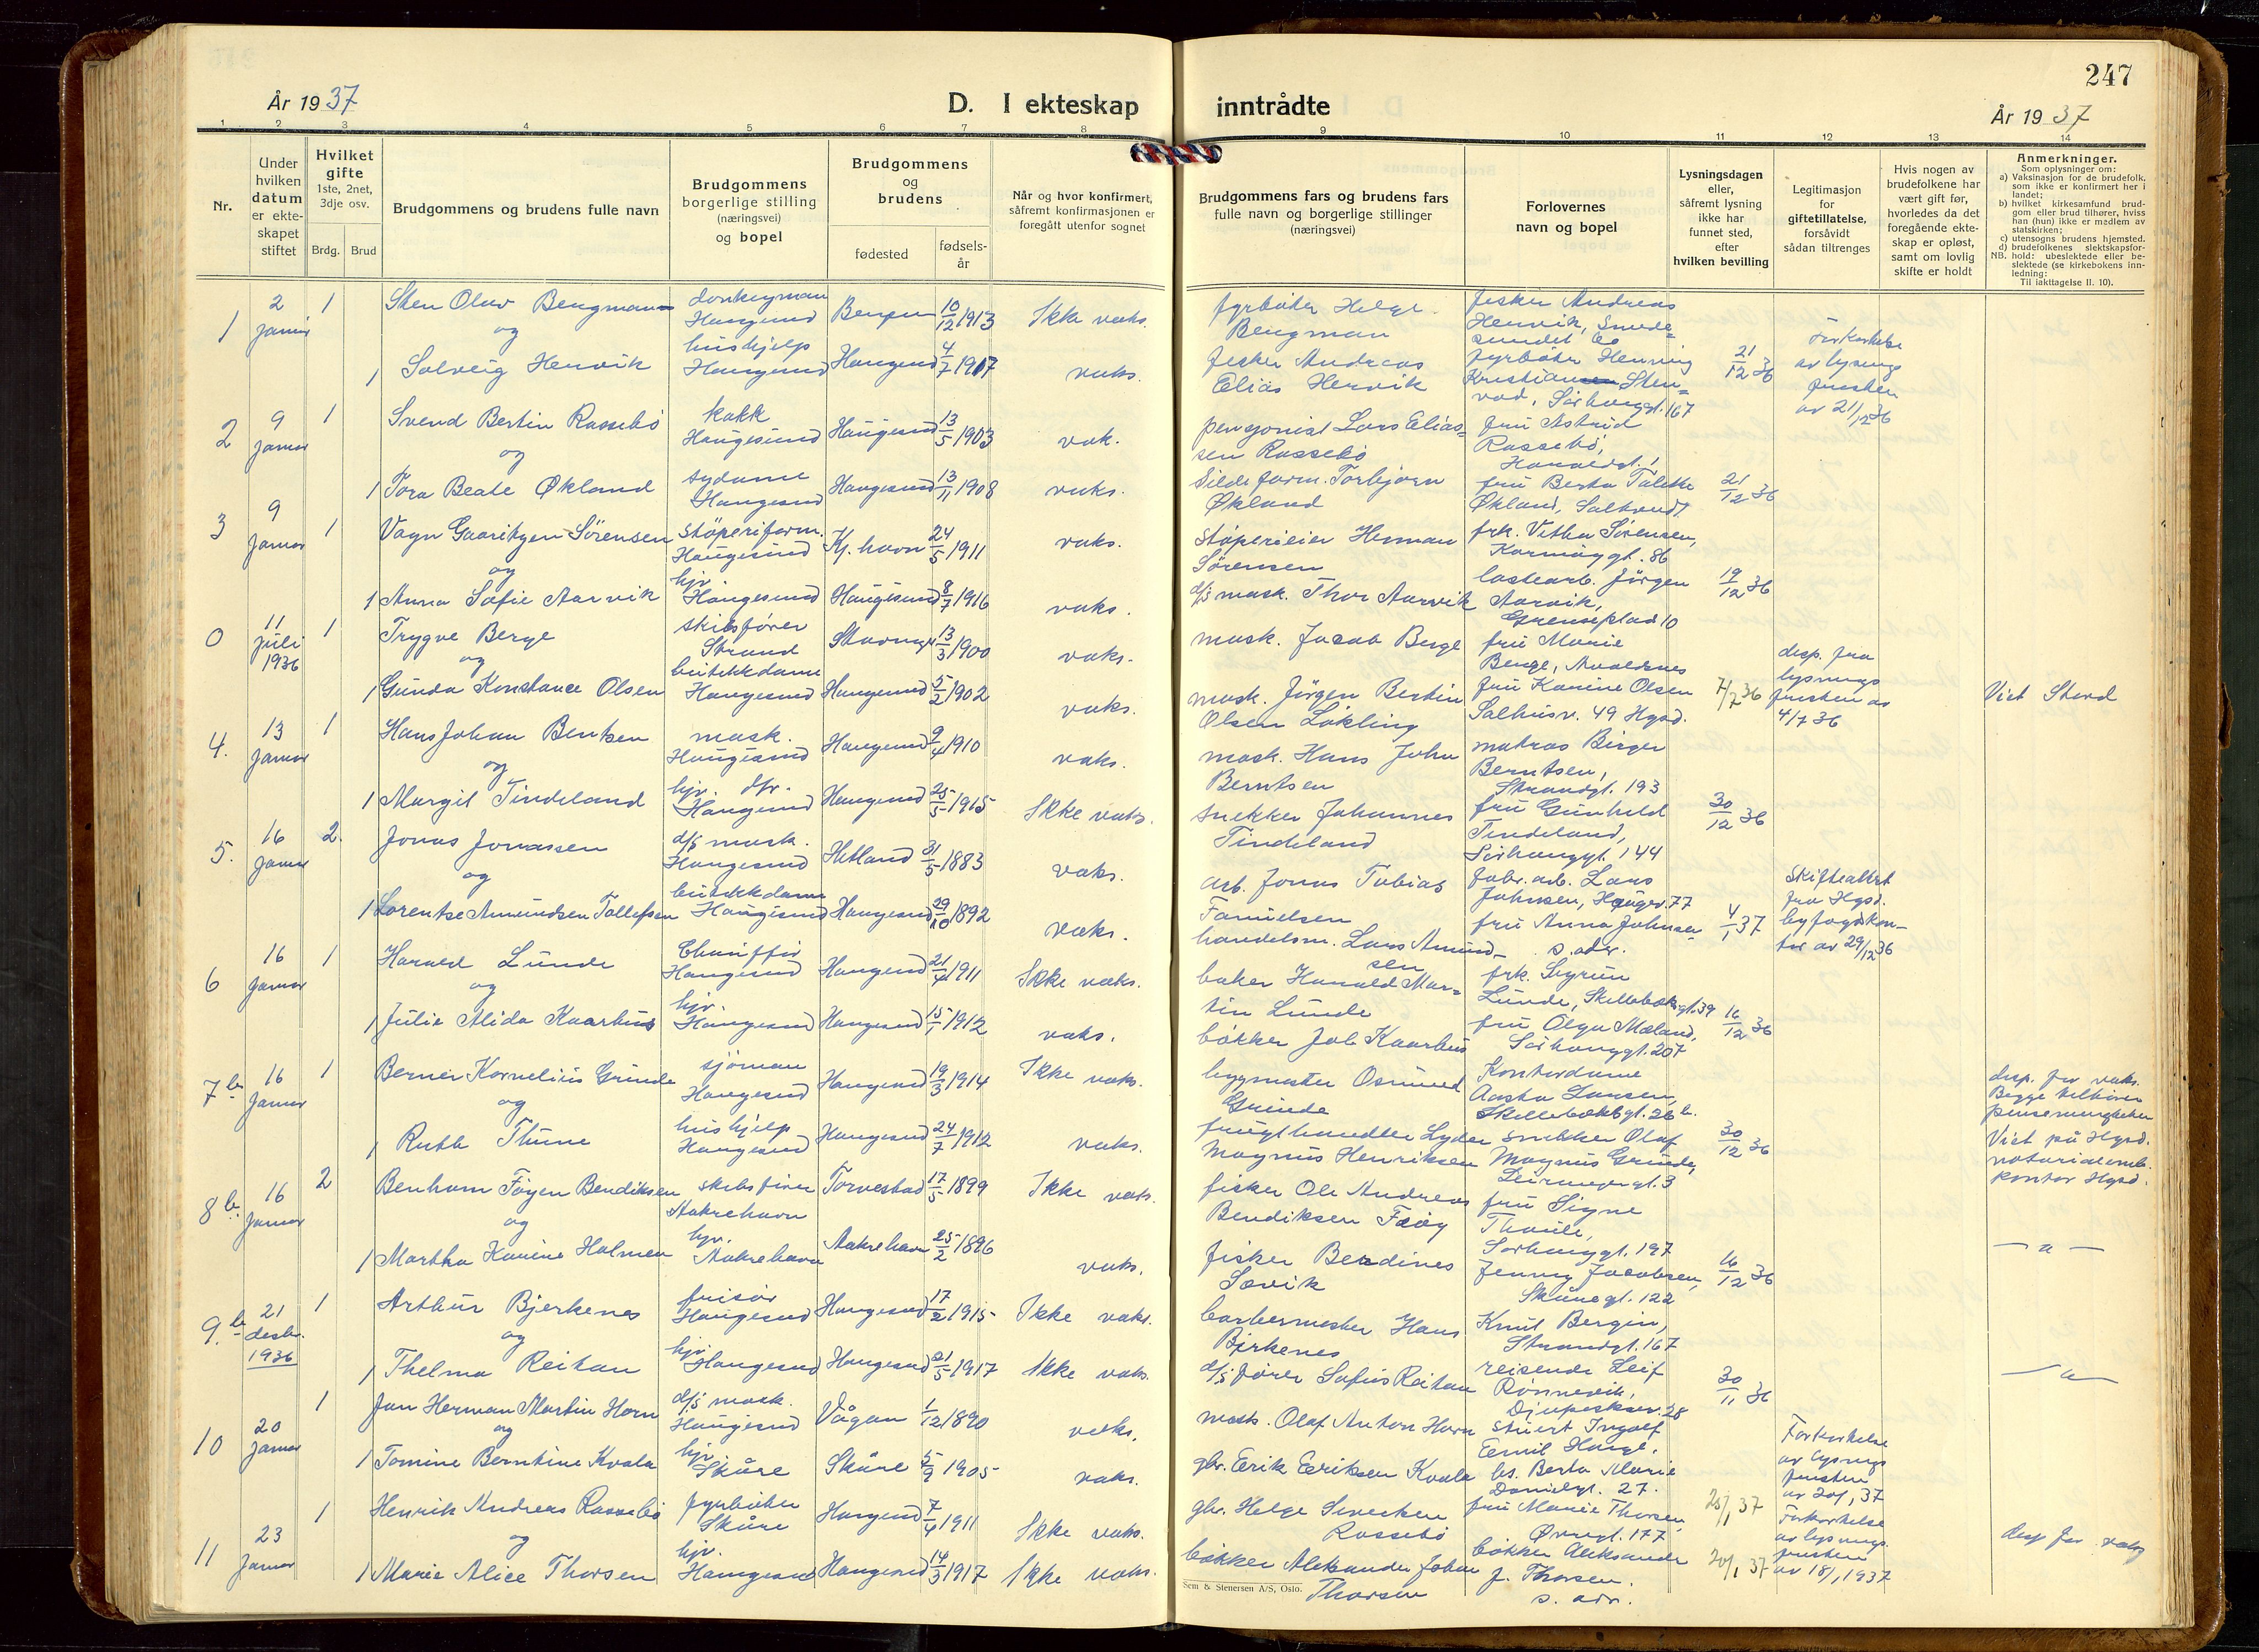 247
År 1937
D. I ekteskap inntrådte
År 1937
1 2 3 4 5 6 7 8 9 10 11 12 13 14
Nr.
Under hvilken datum er ekteskapet stiftet
Hvilket gifte
1ste, 2net, 3dje osv.
Brdg. Brud
Brudgommens og brudens fulle navn
Brudgommens borgerlige stilling (næringsvei) og bopel
Brudgommens og brudens
fødested
fødsels-
år
Når og hvor konfirmert, såfremt konfirmasjonen er foregått utenfor sognet
Brudgommens fars og brudens fars fulle navn og borgerlige stillinger (næringsvei)
Forlovernes navn og bopel
Lysningsdagen eller, såfremt lysning ikke har funnet sted, efter hvilken bevilling
Legitimasjon for giftetillatelse, forsåvidt sådan tiltrenges
Hvis nogen av brudefolkene har vært gift før, hvorledes da det foregående ekte-
skap er opløst, samt om lovlig skifte er holdt
Anmerkninger.
Som oplysninger om:
a) Vaksinasjon for de brudefolk, som ikke er konfirmert her i landet;
b) hvilket kirkesamfund brud-
gom eller brud tilhører, hviss han (hun) ikke er medlem av statskirken;
c) utensogns brudens hjemsted.
d) brudefolkenes slektskapsfor-
hold: ubeslektede eller be-
slektede (se kirkebokens inn-
ledning:
NB.
Til iakttagelse II. 10).
1
2 januar
1
Sten Olav Bengman
og
donkeyman
Haugesund
Bergen
10/12 1913
Ikke vaks.
fyrbøter Helge
Bengman
fisker Andreas
Hervik, Smede-
sundet 60
1 Solveig Hervik
hushjelp
Haugesund
Haugesund
4/7 1917
vaks.
fisker Andreas
Elias Hervik
fyrbøter Henning
Kristiansen Sten-
vad, Sørhauggt. 167
21/12 36
Forkortelse
av lysnings
fristen
av 21/12 36
2
9 januar
1
Svend Bertin Rossebø
og
kokk
Haugesund
Haugesund
13/5 1903
vak.
pensjonist Lars Elias-
sen Rossebø
fru Astrid
Rossebø,
Haraldgt. 1
1 Tora Beate Økland
sydame
Haugesund
Haugesund
13/11 1908
vaks.
Sildeform. Torbjørn
Økland
fru Berta Talette
Økland, Saltvedt
21/12 36
3
9 januar
1
Vagn Gaarikgen Sörensen
og
støperiform.
Haugesund
Kj.havn
24/5 1911
vaks.
støperieier Herman
Sörensen
frk. Vitha Sörensen,
Karmøygt. 86
1 Anna Sofie Aarvik
hjv.
Haugesund
Haugesund
8/7 1916
vaks.
d/s mask. Thor Aarvik
lastearb. Jörgen
Aarvik,
Grenseplad 10
19/12 36
0
11 Juli 1936
1
Trygve Berge
og
skibsfører
Strand
Stavanger
13/3 1900
vaks.
mask. Jacob Berge
fru Marie
Berge, Avaldsnes
1 Gunda Konstance Olsen
butikkdame
Haugesund
Haugesund
5/2 1902
vaks.
mask. Jörgen Bertin
Olsen Lökling
fru Karine Olsen
Salhusv. 49 Hgsd.
7/7 36
disp. fra
lysnings
fristen av
4/7 36
Viet Stord
4.
13 januar
1
Hans Johan Bentsen
og
mask.
Haugesund
Haugesund
9/4 1910
vaks.
mask. Hans John
Berntsen
matros Birger
Berntsen,
Strandgt. 193
1 Margit Tindeland
hjv. dtr.
Haugesund
Haugesund
25/5 1915
Ikke vaks.
snekker Johannes
Tindeland
fru Gunhild
Tindeland,
Sörhauggt. 144
30/12 36
5.
16 januar
2.
Jonas Jonassen
og
d/s mask.
Haugesund
Hetland
31/5 1883
vaks.
arb. Jonas Tobias
Famuelsen
fabr. arb. Lars
Johnsen, Haugev. 77
1 Lorentse Amundsen Tollefsen
butikkdame
Haugesund
Haugesund
29/10 1892
vaks.
handelsm. Lars Amund-
sen
fru Anna Johnsen
s. adr.
4/1 37
Skifteattest
fra Hgsd.
byfogdkon-
tor av 29/12 36
6
16 januar
1
Harald Lunde
og
Chauffør
Haugesund
Haugesund
21/4 1911
Ikke vaks.
baker Harald Mar-
tin Lunde
frk. Sigrun
Lunde, Skillebekgt. 39
1 Julie Alida Kaarhus
hjv.
Haugesund
Haugesund
15/1 1912
vaks.
bökker Job Kaarhus
fru Olga Mæland,
Sörhauggt. 207
16/12 36
7 b.
16 januar
1
Berner Kornelius Grinde
og
sjøman
Haugesund
Haugesund
19/3 1914
Ikke vaks.
byggmester Osmund
Grinde
Kontordame
Aasta Larsen,
Skillebekgt. 26 b.
1 Ruth Thune
hushjelp
Haugesund
Haugesund
24/7 1912
vaks.
frugthandler Lyder
Magnus Henriksen
snekker Olaf
Magnus Grinde,
gt. 3
30/12 36
disp. for vaks.
Begge tilhører
pinsemenigheten
Viet på Hgsd.
notarialemb.
kontor Hgsd.
8 b.
16 januar
2
Benham Föyen Bendiksen
og
skibsfører
Aakrehavn
Torvestad
17/5 1899
Ikke vaks.
fisker Ole Andreas
Bendiksen Føøy
fru Signe
Thaule,
Sørhauggt. 197
1 Martha Karine Holmen
hjv.
Aakrehavn
Aakrehavn
25/2 1896
vaks.
fisker Berdines
Sævik
Jenny Jacobsen,
Skåregt. 122
16/12 36
— a —
9. b.
21 desbr. 1936
1
Arthur Bjerkenes
og
frisør
Haugesund
Haugesund
17/2 1915
Ikke vaks.
barbermester Hans
Bjerkenes
Knut Bergin,
Strandgt. 167
1 Thelma Reitan
hjv.
Haugesund
Haugesund
21/5 1917
Ikke vaks.
d/s fører Sofus Reitan
reisende Leif
Rønnevik,
Djupaskar. 28
30/11 36
— a —
10
20 januar
1
Jan Herman Martin Horn
og
d/s mask.
Haugesund
Vågan
1/12 1890
vaks.
mask. Olaf Anton Horn
stuert Ingolf
Emil Hauge.
1 Tomine Berntine Kvala
hjv.
Skåre
Skåre
5/9 1905
vaks.
gbr. Erik Eriksen Kvala
hs. Berta Marie
Danielgt. 27.
20/1 37
Forkortelse
av lysnings
fristen
av 20/1 37
11
23 Januar
1
Henrik Andreas Rossebø
og
fyrbøter
Skåre
Haugesund
7/4 1911
Ikke vaks.
gbr. Helge Severtsen
Rossebø
fru Marie Thorsen,
Øvregt. 177
1 Marie Alice Thorsen
hjv.
Haugesund
Haugesund
14/3 1917
Ikke vaks.
bökker Aleksander Johan
Thorsen
bökker Aleksander
J. Thorsen.
s. adr.
20/1 37
Forkortelse
av lysnings.
fristen
av 18/1 1937
disp for vaks
Sem & Stenersen A/S, Oslo.